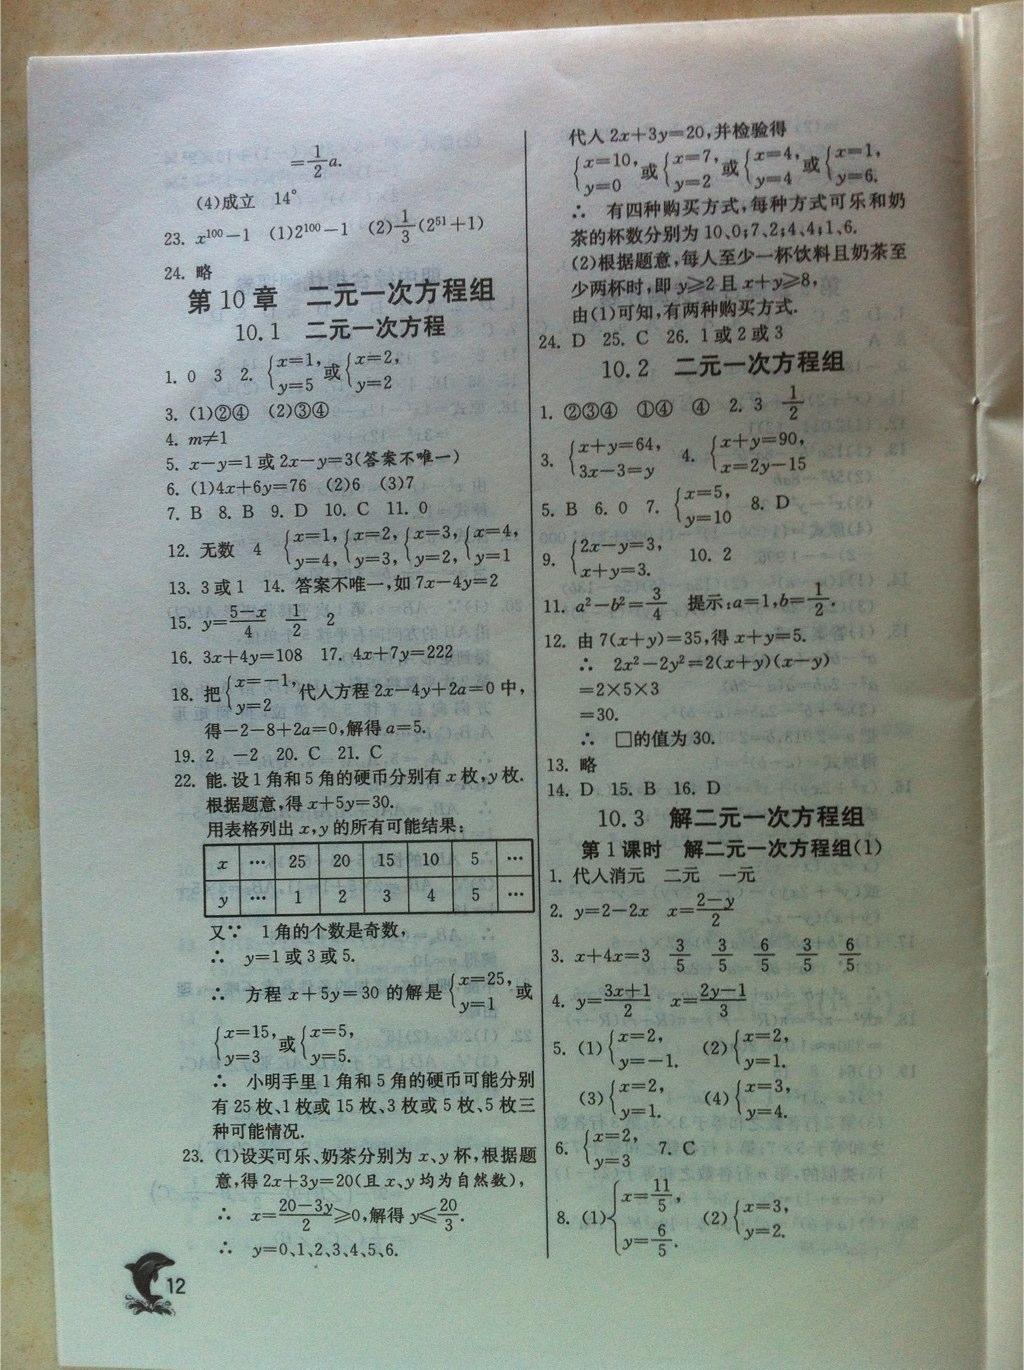 =1/2a.
(4)成立 14°
23. x¹⁰⁰-1 (1)2¹⁰⁰-1 (2)1/3(2⁵¹+1)
24. 略
第10章 二元一次方程组
10.1 二元一次方程
1. 0 3 2. {x=1, y=5 或 {x=2, y=2
3. (1)②④ (2)③④
4. m≠1
5. x-y=1或2x-y=3(答案不唯一)
6. (1)4x+6y=76 (2)6 (3)7
7. B 8. B 9. D 10. C 11. 0
12. 无数 4 {x=1, y=4, {x=2, y=3, {x=3, y=2, {x=4, y=1
13. 3或1 14. 答案不唯一,如7x-4y=2
15. y=5-x/4 1/2 2
16. 3x+4y=108 17. 4x+7y=222
18. 把{x=-1, y=2 代人方程2x-4y+2a=0中,
得-2-8+2a=0,解得a=5.
19. 2 -2 20. C 21. C
22. 能. 设1角和5角的硬币分别有x枚,y枚.
根据题意,得x+5y=30.
用表格列出x,y的所有可能结果:
x … 25 20 15 10 5 …
y … 1 2 3 4 5 …
又∵ 1角的个数是奇数,
∴ y=1或3或5.
∴ 方程x+5y=30的解是{x=25, y=1 或
{x=15, y=3 或 {x=5, y=5.
∴ 小明手里1角和5角的硬币可能分别
有25枚、1枚或15枚、3枚或5枚、5枚三
种可能情况.
23. (1)设买可乐、奶茶分别为x、y杯,根据题
意,得2x+3y=20(且x、y均为自然数),
∴ x=20-3y/2≥0,解得y≤20/3.
∴ y=0、1、2、3、4、5、6.
12
代人2x+3y=20,并检验得
{x=10, y=0 或 {x=7, y=2 或 {x=4, y=4 或 {x=1, y=6.
∴ 有四种购买方式,每种方式可乐和奶
茶的杯数分别为10、0;7、2;4、4;1、6.
(2)根据题意,每人至少一杯饮料且奶茶至
少两杯时,即y≥2且x+y≥8,
由(1)可知,有两种购买方式.
24. D 25. C 26. 1或2或3
10.2 二元一次方程组
1. ②③④ ①④ ④ 2. 3 1/2
3. {x+y=64, 3x-3=y 4. {x+y=90, x=2y-15
5. B 6. 0 7. {x=5, y=10 8. D
9. {2x-y=3, x+y=3. 10. 2
11. a²-b²=3/4 提示:a=1,b=1/2.
12. 由7(x+y)=35,得x+y=5.
∴ 2x²-2y²=2(x+y)(x-y)
=2×5×3
=30.
∴ □的值为30.
13. 略
14. D 15. B 16. D
10.3 解二元一次方程组
第1课时 解二元一次方程组(1)
1. 代人消元 二元 一元
2. y=2-2x x=2-y/2
3. x+4x=3 3/5 3/5 6/5 3/5 6/5
4. y=3x+1/2 x=2y-1/3
5. (1){x=2, y=-1. (2){x=2, y=1.
(3){x=2, y=1. (4){x=3, y=4.
6. {x=2, y=3 7. C
8. (1){x=11/5, y=6/5. (2){x=3, y=2.